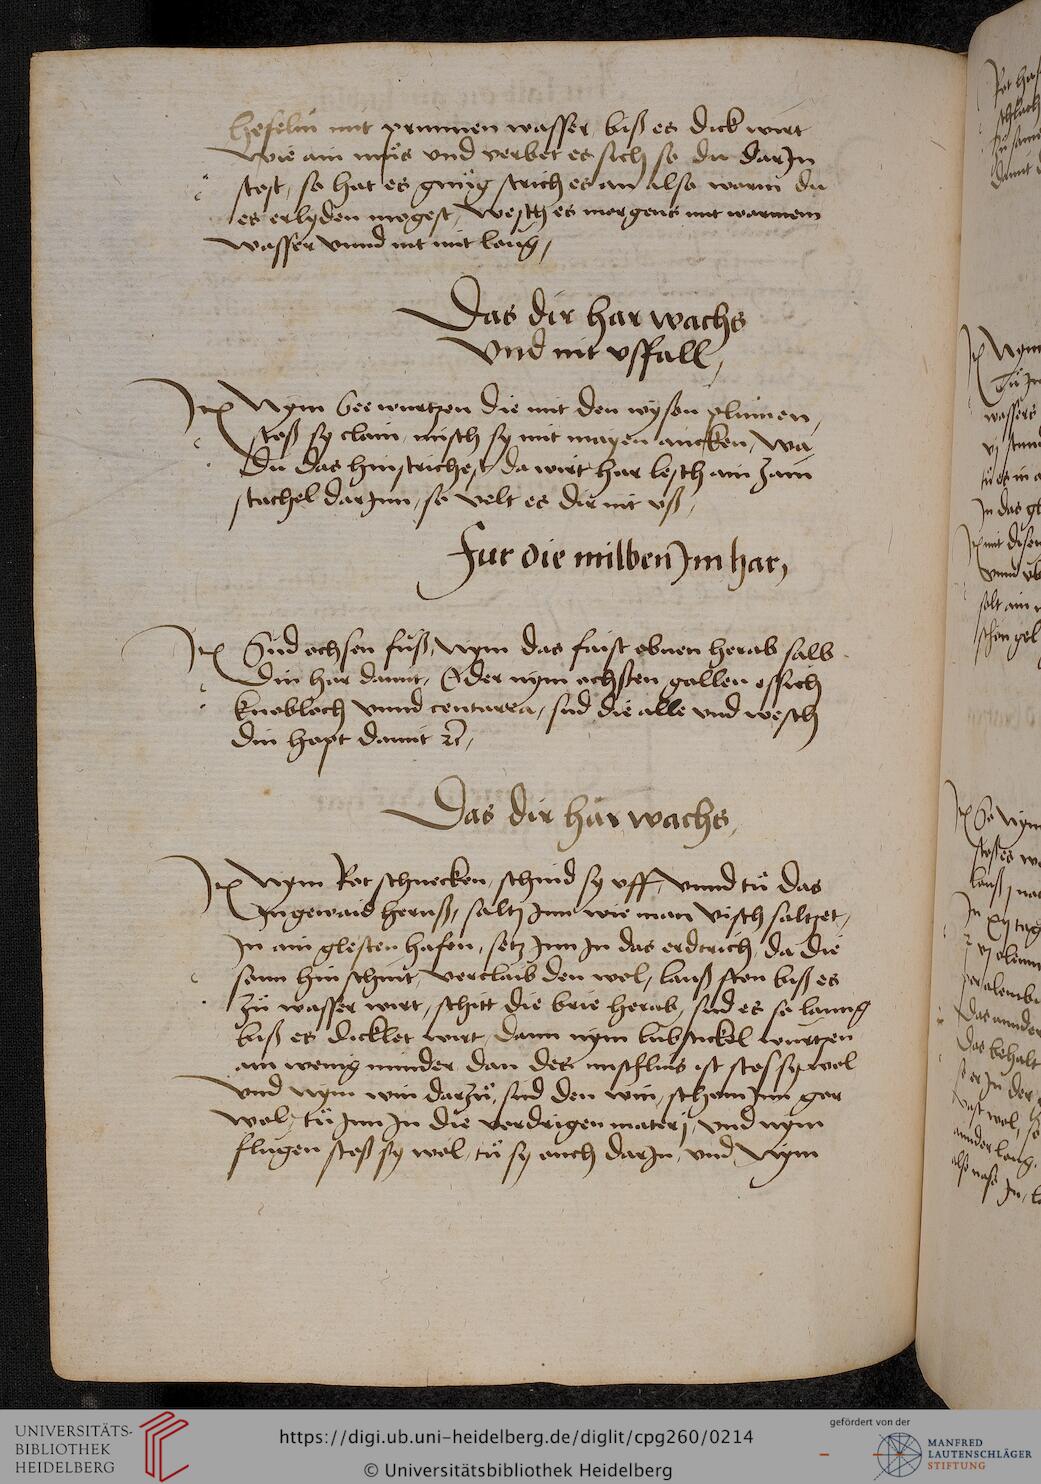 hefelin mit prunnen wasser, biß es dick wirt
wie ain můs vnd verbet es sich so du darJn
stost, so hat es gnůg strich es an also warm du
es erlyden mogest, wesch es morgens mit warmem
wasser vnnd nit mit loug,
Das dir har wachs
vnd nit vssfall,
Jt Nym seewurtzen die mit den wysen plůmen,
stoß sy clain, misch sy mit mayen ancken, wa
du das hinstrichest da wirt har lesch ain zain
stachel darJnn, so velt es dir nit vß,
Fur die milben Jm har,
Jt Sud ochsen fůß, Nym das faist obnen herab salb
din har damit, Oder nym ochssen gallen essich
knobloch vnnd centarea, sud die alle vnd wesch
din hopt damit
Das dir har wachs,
Jt Nym Rot schnecken, schnid sy vff, vnnd tů das
Jngewaid heruß, saltz Jnn wie man visch saltzet,
Jn ain glesten hafen, setz Jnn Jn das erdtrich, da die
sunn hin schint, verclaib den wol, lauß ston biß es
zů wasser wirt, schitt die brie herab, sud es so lanng
biß es dicklet wirt, dann nym lubstickel wurtzen
ain wenig minder dan des ist stos sy wol
vnd nym win darzů, sud den win, schom Jnn gar
wol, tů Jnn Jn die vordrigen materj, vnd nym
flugen stoß sy wol, tů sy auch darJn, vnd Nym
UNIVERSITÄTS-
BIBLIOTHEK
HEIDELBERG
https://digi.ub.uni-heidelberg.de/diglit/cpg260/0214
© Universitätsbibliothek Heidelberg
gefördert von der
MANFRED
LAUTENSCHLÄGER
STIFTUNG